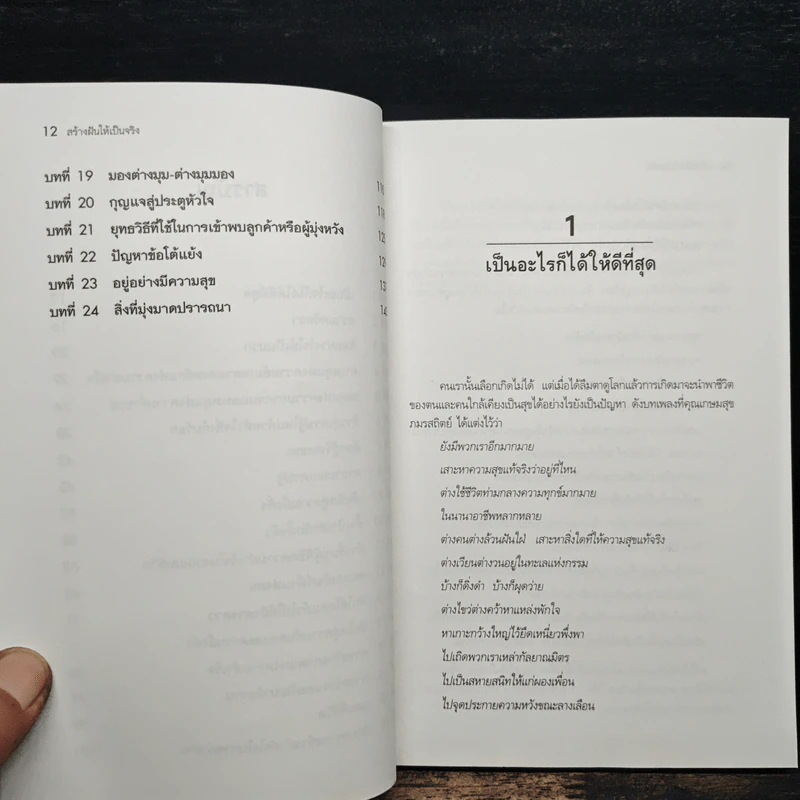 12 สร้างฝันให้เป็นจริง
บทที่ 19 มองต่างมุม-ต่างมุมมอง
บทที่ 20 กุญแจสู่ประตูหัวใจ
บทที่ 21 ยุทธวิธีที่ใช้ในการเข้าพบลูกค้าหรือผู้มุ่งหวัง
บทที่ 22 ปัญหาข้อโต้แย้ง
บทที่ 23 อยู่อย่างมีความสุข
บทที่ 24 สิ่งที่มุ่งมาดปรารถนา
1
เป็นอะไรก็ได้ให้ดีที่สุด
คนเรานั้นเลือกเกิดไม่ได้ แต่เมื่อได้ลืมตาดูโลกแล้วการเกิดมาจะนำพาชีวิต
ของตนและคนใกล้เคียงเป็นสุขได้อย่างไรยังเป็นปัญหา ดังบทเพลงที่คุณเกษมสุข
ภมรสถิตย์ ได้แต่งไว้ว่า
ยังมีพวกเราอีกมากมาย
เสาะหาความสุขแท้จริงว่าอยู่ที่ไหน
ต่างใช้ชีวิตท่ามกลางความทุกข์มากมาย
ในนานาอาชีพหลากหลาย
ต่างคนต่างล้วนฝันใฝ่ เสาะหาสิ่งใดที่ให้ความสุขแท้จริง
ต่างเวียนต่างวนอยู่ในทะเลแห่งกรรม
บ้างก็ดิ่งดำ บ้างก็ผุดว่าย
ต่างไขว่ต่างคว้าหาแหล่งพักใจ
หาเกาะกว้างใหญ่ไว้ยึดเหนี่ยวพึ่งพา
ไปเถิดพวกเราเหล่ากัลยาณมิตร
ไปเป็นสหายสนิทให้แก่ผองเพื่อน
ไปจุดประกายความหวังขณะลางเลือน